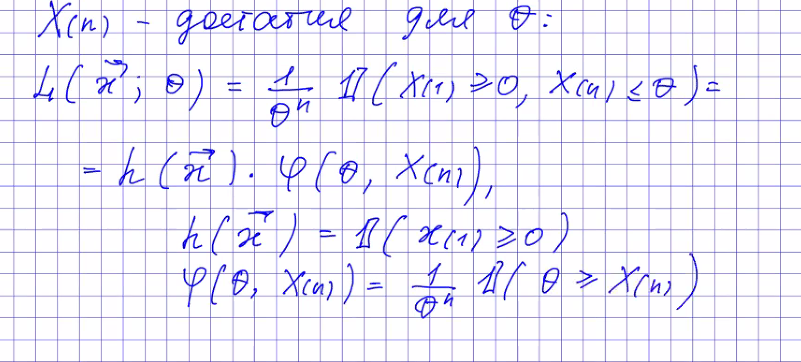 X(n) - достаточ для θ:
L(x⃗; θ) = 1/θⁿ 𝟙(X(1) ≥ 0, X(n) ≤ θ) =
= h(x⃗) · φ(θ, X(n)),
h(x⃗) = 𝟙(x(1) ≥ 0)
φ(θ, X(n)) = 1/θⁿ 𝟙(θ ≥ X(n))